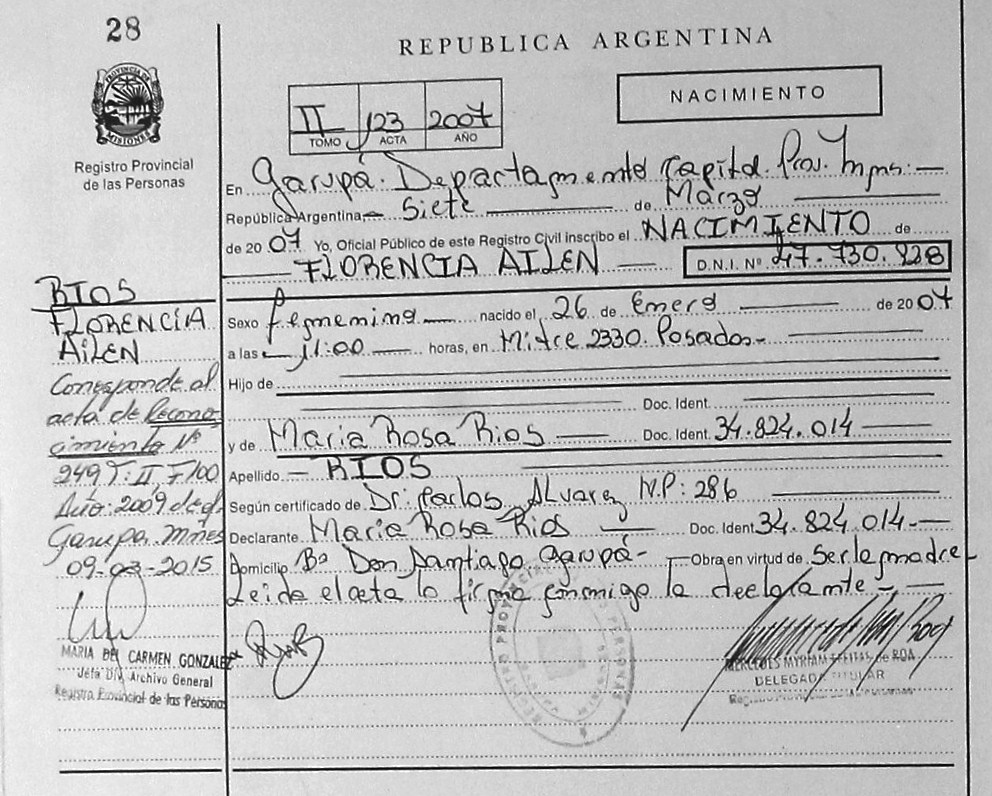 28
REPUBLICA ARGENTINA
PROVINCIA DE
MISIONES
Registro Provincial
de las Personas
II 123 2007
TOMO ACTA AÑO
NACIMIENTO
En Garupá. Departamento Capital. Prov. Mnes:
República Argentina Siete de Marzo
de 2007 Yo, Oficial Público de este Registro Civil inscribo el NACIMIENTO de
FLORENCIA AILEN D.N.I. Nº 47.730.928
Sexo femenino nacido el 26 de Enero de 2007
a las 11:00 horas, en Mitre 2330. Posadas
Hijo de
Doc. Ident.
y de Maria Rosa Rios Doc. Ident. 34.824.014
Apellido RIOS
Según certificado de Dr. Carlos Alvarez N.P: 286
Declarante Maria Rosa Rios Doc. Ident. 34.824.014
Domicilio Bº Don Santiago Garupá Obra en virtud de Ser la madre
Leida el acta lo firma conmigo la declarante
RIOS
FLORENCIA
AILEN
Corresponde al
acta de Recono-
cimiento Nº
249 T: II, F/100
Año: 2009 del
Garupa. Mnes
09-03-2015
MARIA DEL CARMEN GONZALEZ
Jefa Div. Archivo General
Registro Provincial de las Personas
MERCEDES MYRIAM FREITAS de ROA
DELEGADA TITULAR